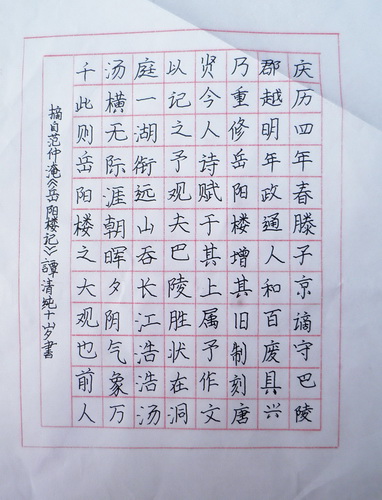 庆历四年春滕子京谪守巴陵
郡越明年政通人和百废具兴
乃重修岳阳楼增其旧制刻唐
贤今人诗赋于其上属予作文
以记之予观夫巴陵胜状在洞
庭一湖衔远山吞长江浩浩汤
汤横无际涯朝晖夕阴气象万
千此则岳阳楼之大观也前人
摘自范仲淹《岳阳楼记》譚清纯十岁書